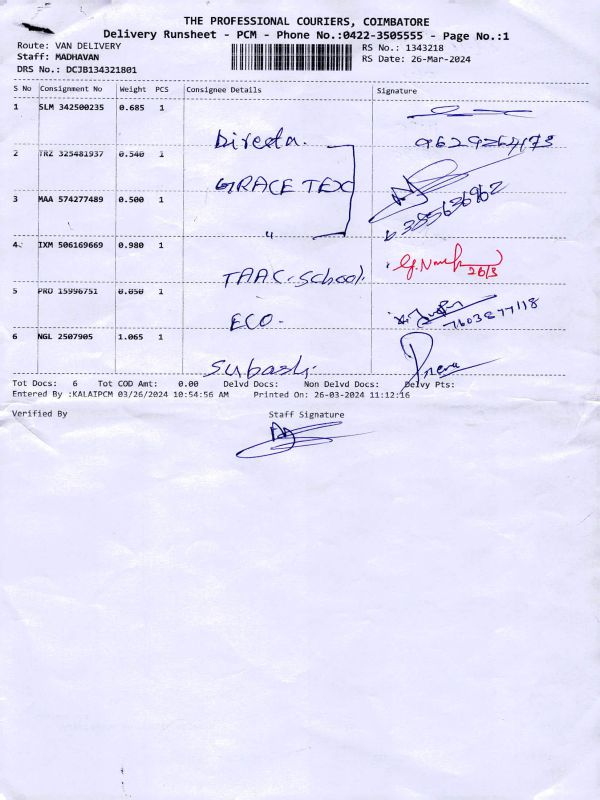 THE PROFESSIONAL COURIERS, COIMBATORE
Delivery Runsheet - PCM - Phone No.:0422-3505555 - Page No.:1
Route: VAN DELIVERY
RS No.: 1343218
Staff: MADHAVAN
RS Date: 26-Mar-2024
DRS No.: DCJB134321801
S No Consignment No Weight PCS Consignee Details Signature
1 SLM 342500235 0.685 1
Directa.
9629264173
2 TRZ 325481937 0.540 1
GRACE TEX
3 MAA 574277489 0.500 1
6385636962
"
4 IXM 506169669 0.980 1
26/3
TAAC. School.
5 PRO 15996751 0.050 1
7603877118
ECO.
6 NGL 2507905 1.065 1
Subash.
Prena
Tot Docs: 6 Tot COD Amt: 0.00 Delvd Docs: Non Delvd Docs: Delvy Pts:
Entered By :KALAIPCM 03/26/2024 10:54:56 AM Printed On: 26-03-2024 11:12:16
Verified By Staff Signature